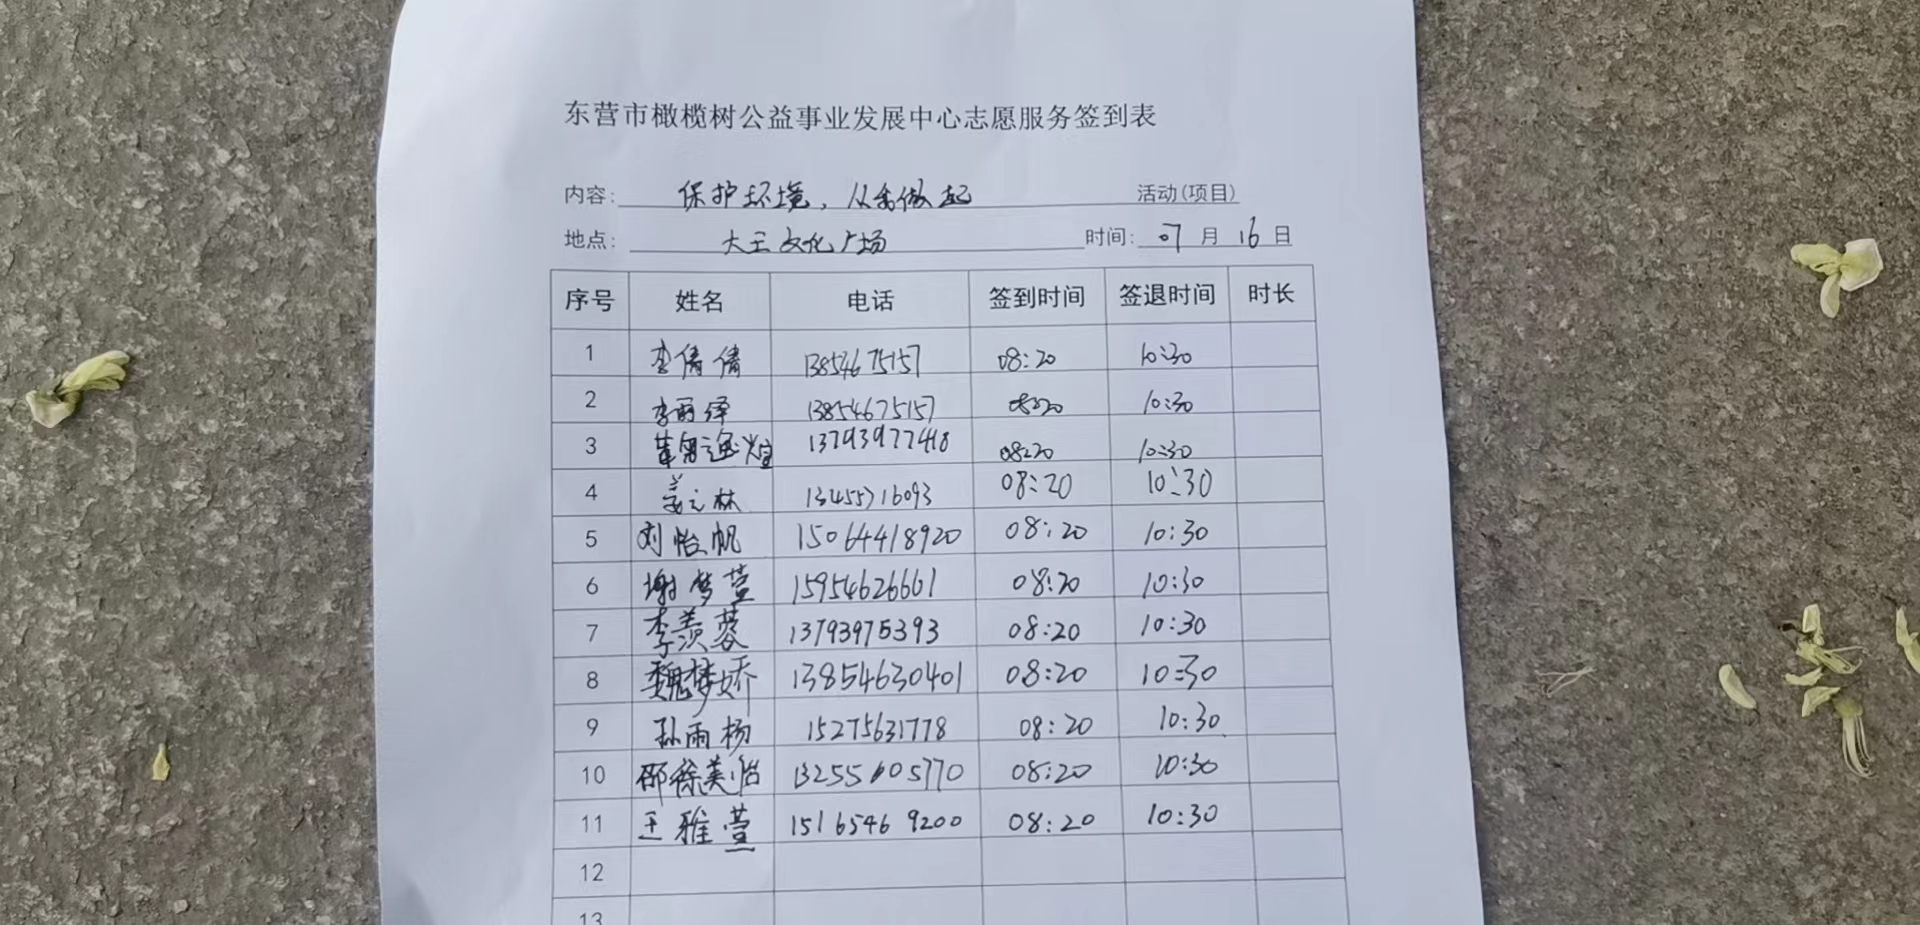 东营市橄榄树公益事业发展中心志愿服务签到表
内容: 保护环境,从我做起 活动(项目)
地点: 大王文化广场 时间: 07 月 16 日
序号 姓名 电话 签到时间 签退时间 时长
1 李倩倩 13854675157 08:20 10:30
2 李丽绎 13854675157 08:20 10:30
3 13793977418 08:20 10:30
4 姜元林 13455716093 08:20 10:30
5 刘怡帆 15064418920 08:20 10:30
6 谢梦萱 15954626661 08:20 10:30
7 李羡蓉 13793975393 08:20 10:30
8 魏梦娇 13854630401 08:20 10:30
9 孙雨杨 15275631778 08:20 10:30
10 邵徐美怡 13255605770 08:20 10:30
11 王雅萱 15165469200 08:20 10:30
12
13